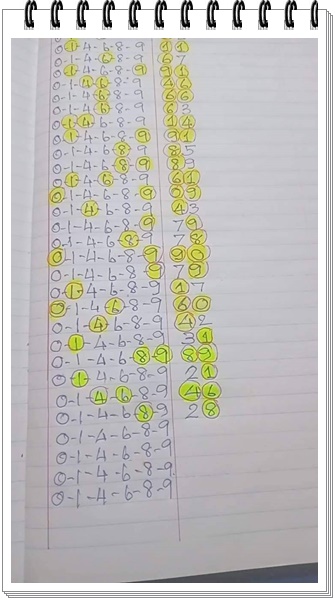 0-1-4-6-8-9 11
0-1-4-6-8-9 67
0-1-4-6-8-9 91
0-1-4-6-8-9 46
0-1-4-6-8-9 66
0-1-4-6-8-9 63
0-1-4-6-8-9 14
0-1-4-6-8-9 91
0-1-4-6-8-9 85
0-1-4-6-8-9 89
0-1-4-6-8-9 61
0-1-4-6-8-9 09
0-1-4-6-8-9 43
0-1-4-6-8-9 79
0-1-4-6-8-9 78
0-1-4-6-8-9 90
0-1-4-6-8-9 79
0-1-4-6-8-9 17
0-1-4-6-8-9 60
0-1-4-6-8-9 42
0-1-4-6-8-9 31
0-1-4-6-8-9 89
0-1-4-6-8-9 21
0-1-4-6-8-9 46
0-1-4-6-8-9 28
0-1-4-6-8-9
0-1-4-6-8-9
0-1-4-6-8-9
0-1-4-6-8-9